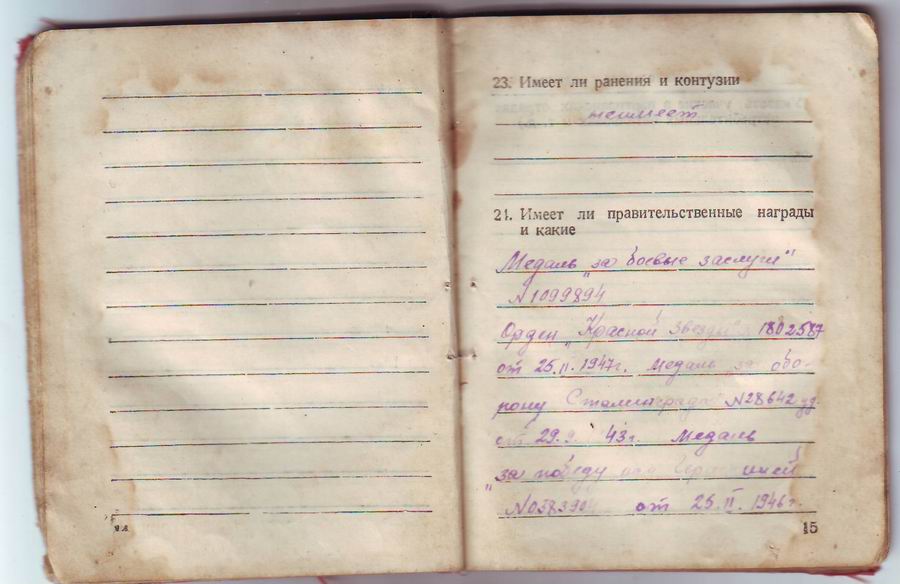 23. Имеет ли ранения и контузии
неимеет
24. Имеет ли правительственные награды
и какие
Медаль „за боевые заслуги"
N 1099894
Орден „Красной Звезды" 1802587
от 25.II.1947г. Медаль за обо-
рону Сталинграда N28642 уд.
от 29.9. 43г. Медаль
„за победу над Германией
от 25.II.1946г.
15